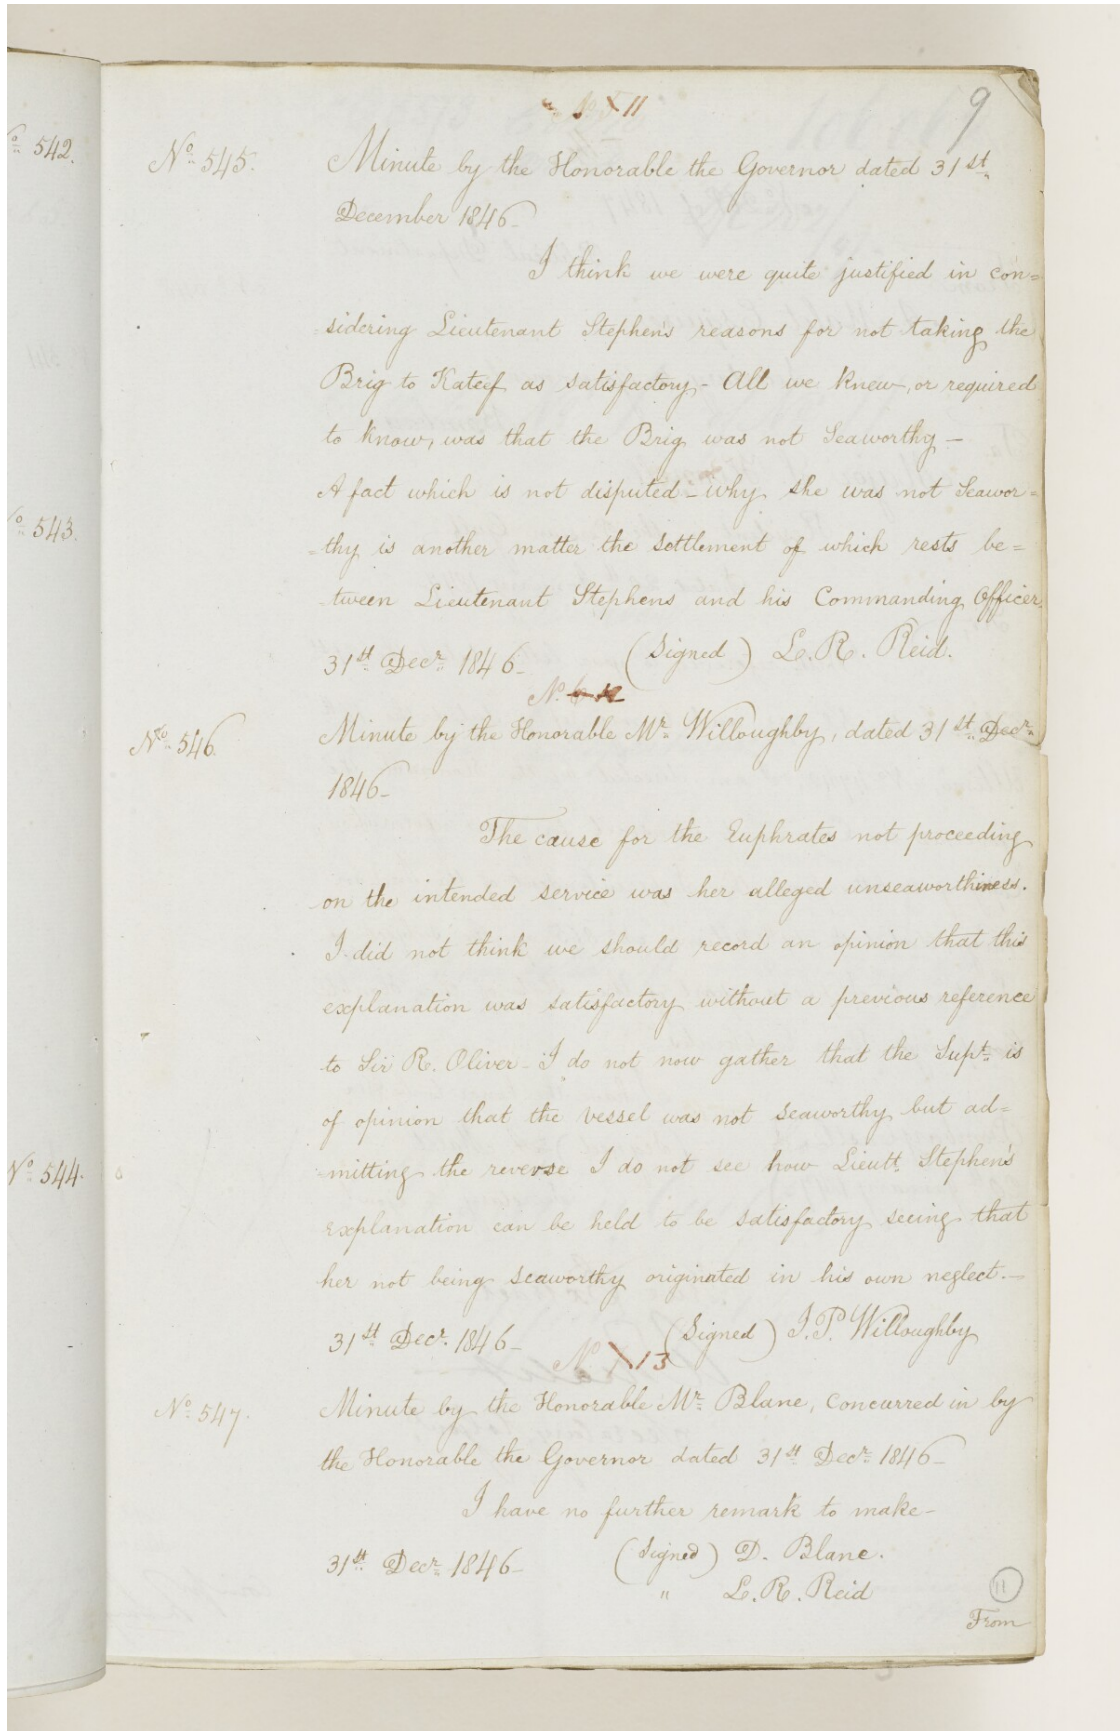 9
11
No. 542.
No. 545.
Minute by the Honorable the Governor dated 31st.
December 1846_
I think we were quite justified in con=
sidering Lieutenant Stephens reasons for not taking the
Brig to Kateef as satisfactory_ All we knew, or required
to know, was that the Brig was not Seaworthy_
A fact which is not disputed_ why she was not Seawor=
No. 543.
=thy is another matter the settlement of which rests be=
tween Lieutenant Stephens and his Commanding Officer.
31st Decr. 1846_ (Signed) L. R. Reid.
No. 12
No. 546.
Minute by the Honorable Mr. Willoughby, dated 31st. Decr.
1846_
The cause for the Euphrates not proceeding
on the intended service was her alleged unseaworthiness.
I did not think we should record an opinion that this
explanation was satisfactory without a previous reference
to Sir R. Oliver_ I do not now gather that the Supt. is
of opinion that the vessel was not seaworthy but ad=
No. 544.
mitting the reverse I do not see how Lieutt. Stephen's
explanation can be held to be satisfactory seeing that
her not being seaworthy originated in his own neglect._
31st Decr. 1846_ (Signed) J. P. Willoughby
No. 13
No. 547.
Minute by the Honorable Mr. Blane, Concurred in by
the Honorable the Governor dated 31st Decr. 1846_
I have no further remark to make_
31st. Decr. 1846_ (Signed) D. Blane.
" L. R. Reid
11
From